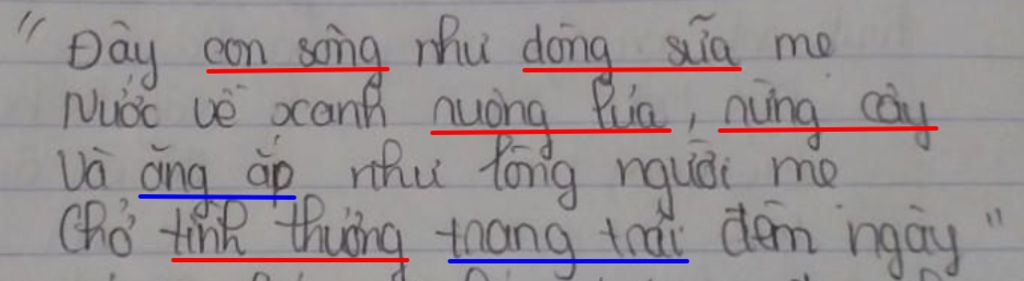 "Đây con sông như dòng sữa mẹ
Nước về xanh ruộng lúa, rừng cây
Và ăng ắp như lòng người mẹ
Chở tình thương trang trải đêm ngày"